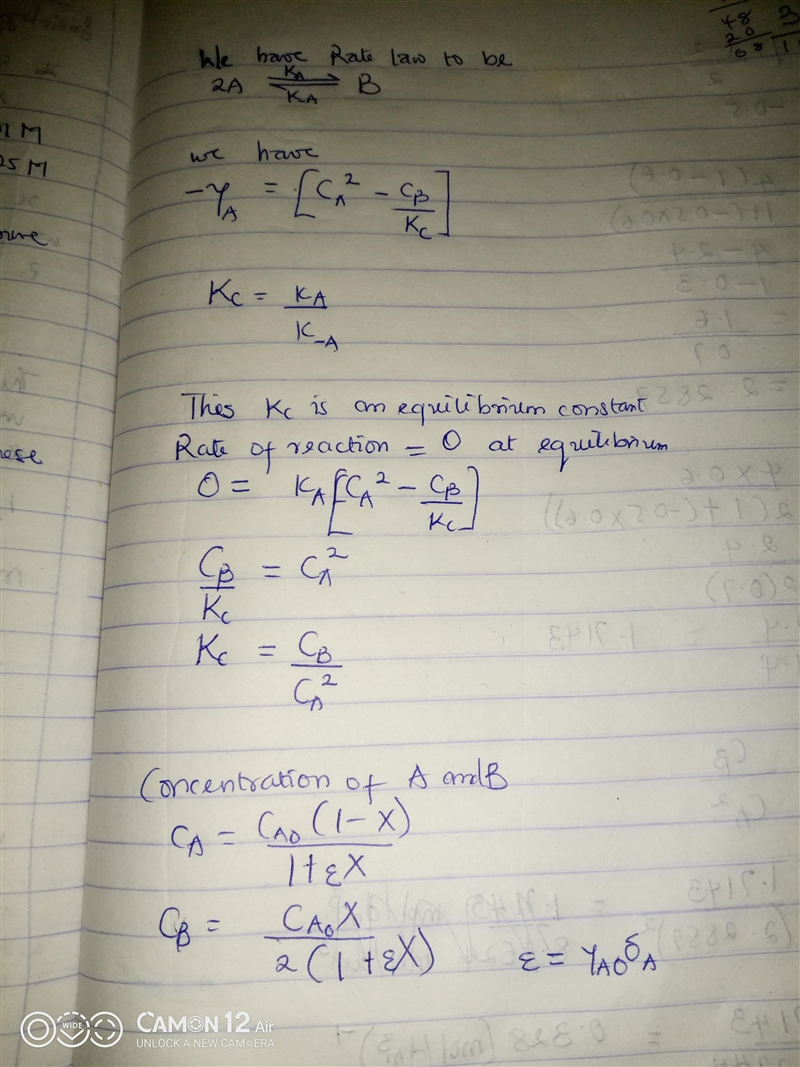 We have Rate law to be
2A ⇌ B
KA
KA
we have
-γA = [CA² - CB/KC]
KC = KA/K-A
This KC is an equilibrium constant
Rate of reaction = 0 at equilibrium
0 = KA[CA² - CB/KC]
CB/KC = CA²
KC = CB/CA²
Concentration of A and B
CA = CA0(1-X)/1+εX
CB = CA0X/2(1+εX)
ε = YA0δA
WIDE
CAMON 12 Air
UNLOCK A NEW CAMERA